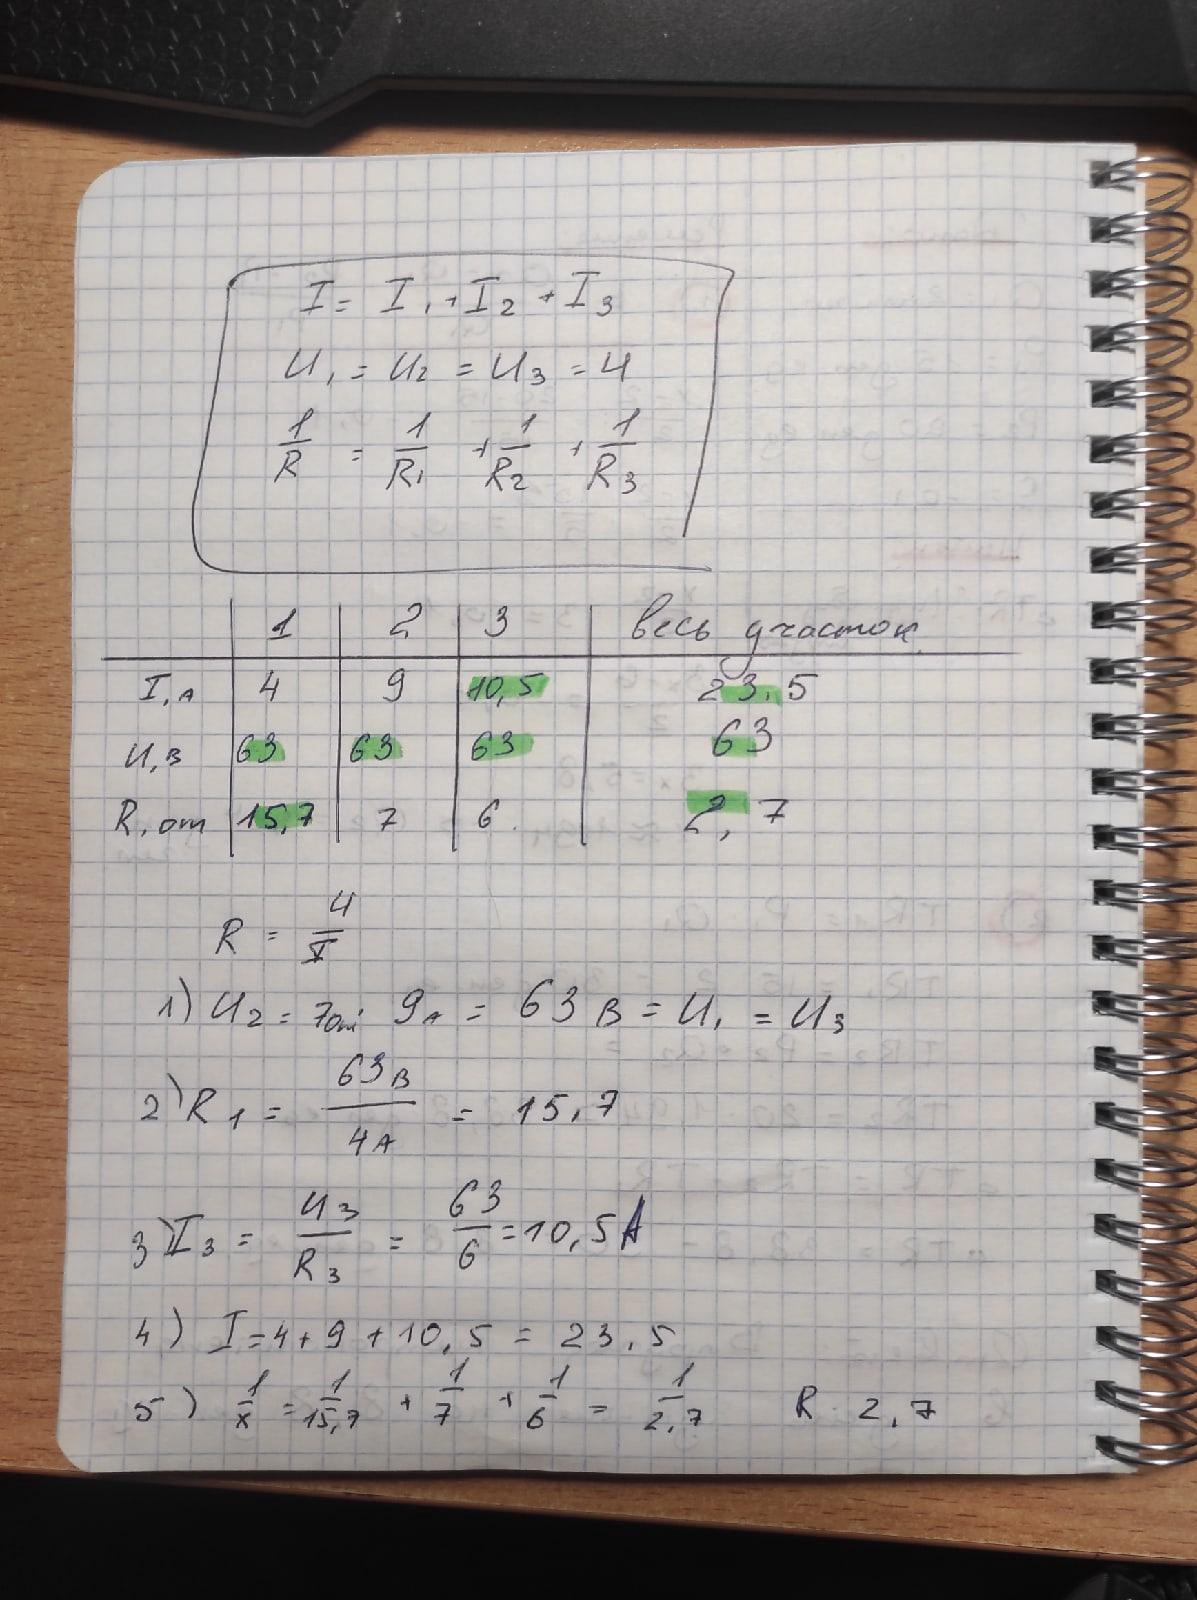 I = I₁ + I₂ + I₃
U₁ = U₂ = U₃ = U
1/R = 1/R₁ + 1/R₂ + 1/R₃
1 2 3 весь участок
I, А 4 9 10,5 23,5
U, В 63 63 63 63
R, ом 15,7 7 6. 2,7
R = U/I
1) U₂ = 7ом · 9А = 63 В = U₁ = U₃
2) R₁ = 63В/4А = 15,7
3) I₃ = U₃/R₃ = 63/6 = 10,5 А
4) I = 4 + 9 + 10,5 = 23,5
5) 1/x = 1/15,7 + 1/7 + 1/6 = 1/2,7 R 2,7